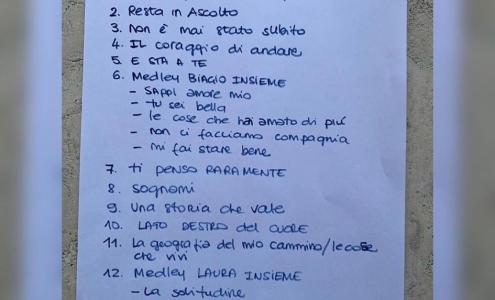 2. Resta in Ascolto
3. non è mai stato subito
4. IL coraggio di andare
5. E STA A TE
6. Medley BIAGIO INSIEME
- SAPPI amore mio
- tu sei bella
- le cose che hai amato di più
- non ci facciamo compagnia
- mi fai stare bene
7. ti PENSO RARAMENTE
8. sognami
9. una storia che vale
10. LATO DESTRO del CUORE
11. La geografia del mio cammino/le cose
che vivi
12. Medley LAURA INSIEME
- La solitudine